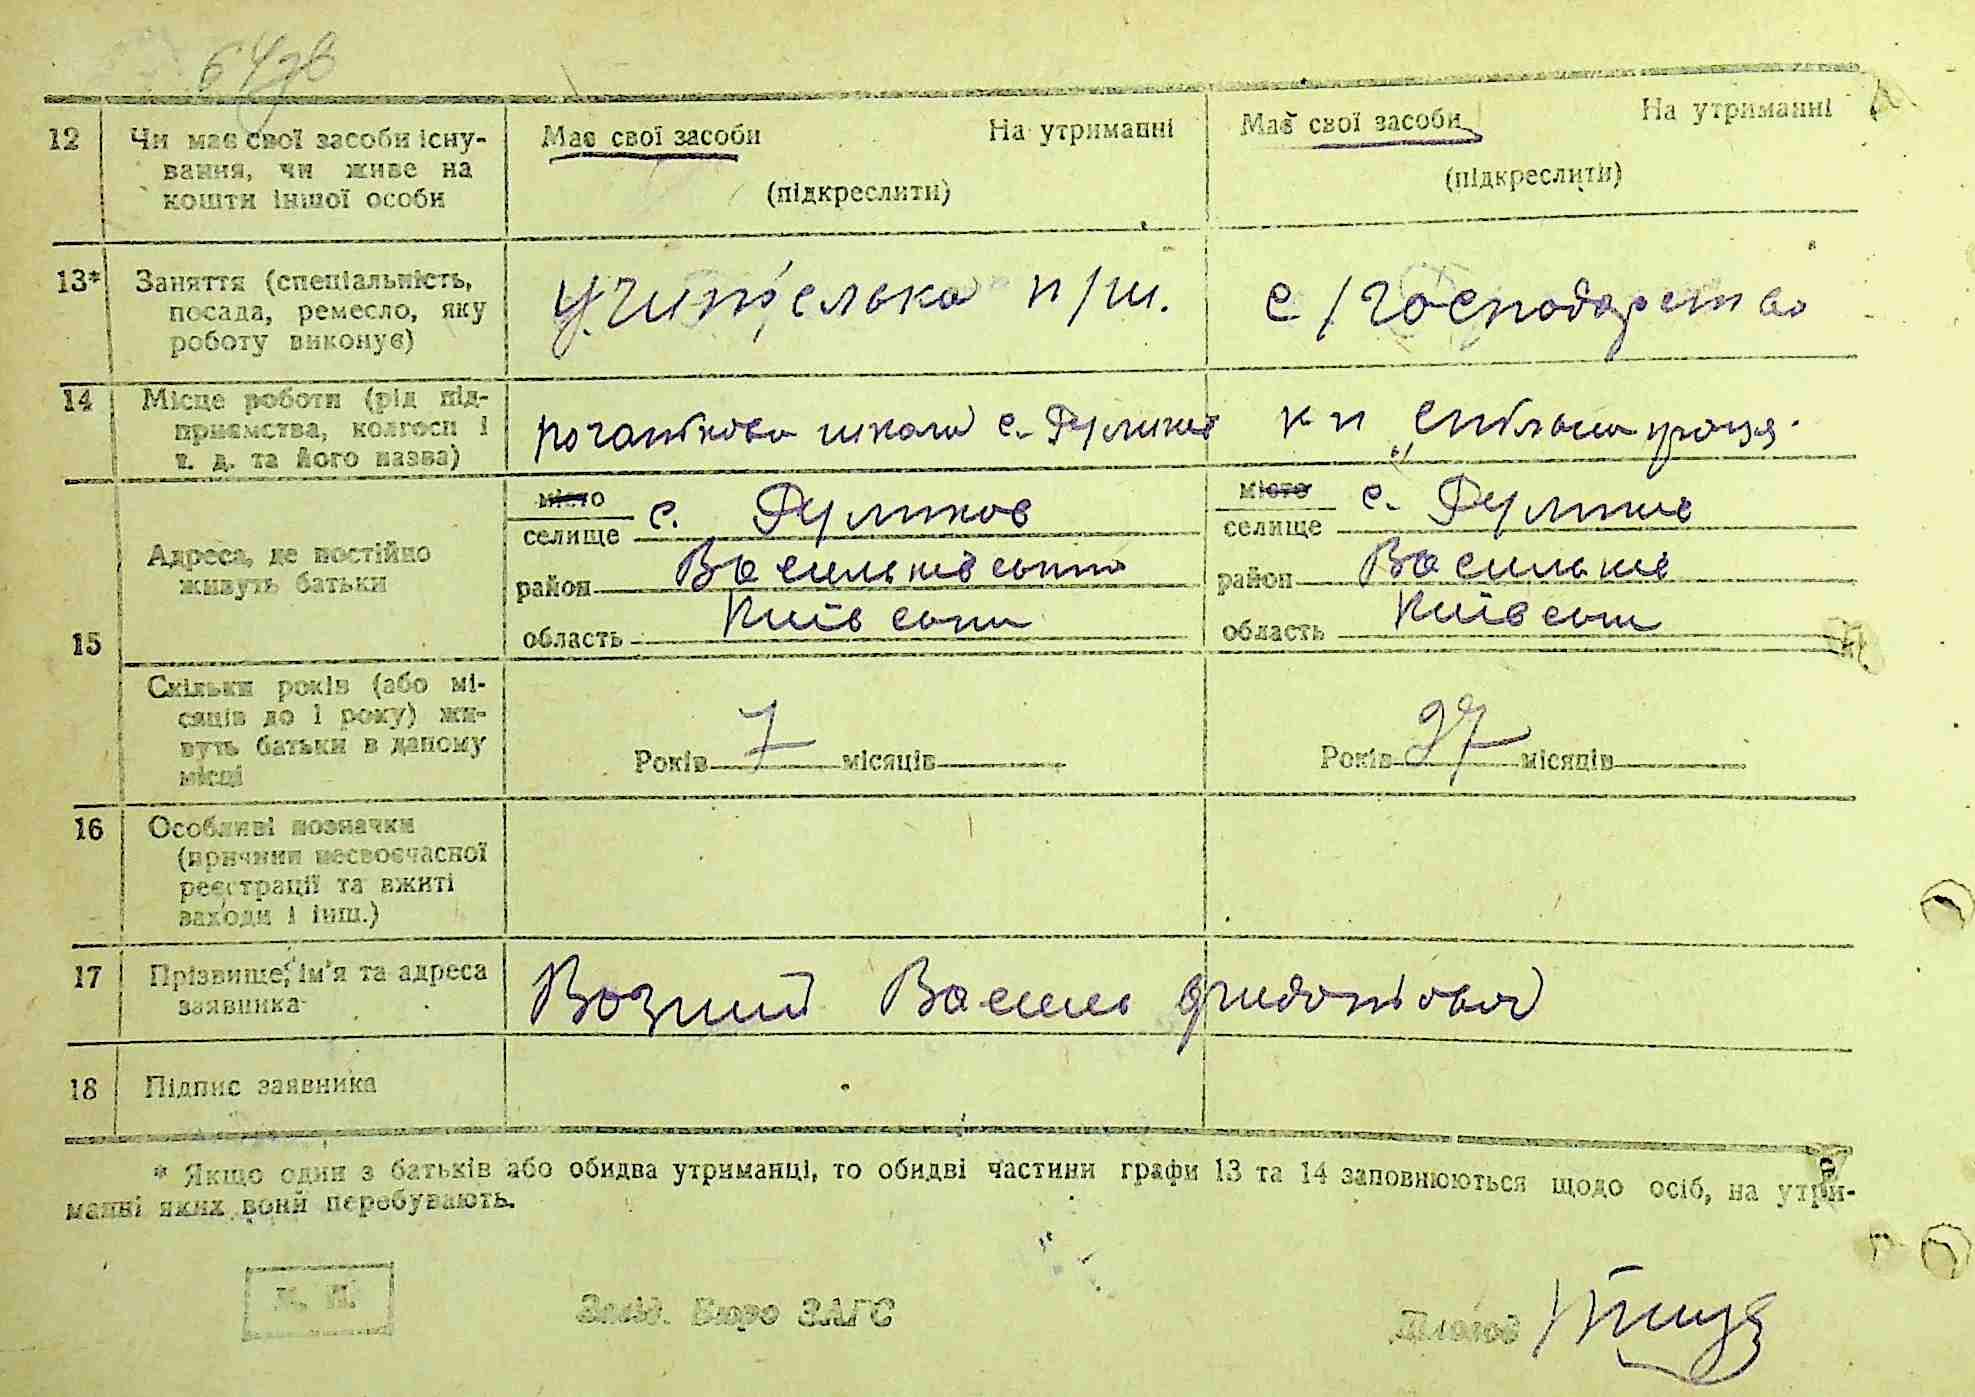 12 Чи має свої засоби існу-
вання, чи живе на
кошти іншої особи
Має свої засоби На утриманні
(підкреслити)
Має свої засоби На утриманні
(підкреслити)
13* Заняття (спеціальність,
посада, ремесло, яку
роботу виконує)
Учителька п/ш.
с/господарство
14 Місце роботи (рід під-
приємства, колгосп і
т. д. та його назва)
початкова школа с.
к п „Спільна праця
15 Адреса, де постійно
живуть батьки
місто
селище с.
район Васильківський
область Київська
місто
селище с.
район Васильків
область Київськ
Скільки років (або мі-
сяців до 1 року) жи-
вуть батьки в даному
місці
Років 7 місяців
Років 27 місяців
16 Особливі позначки
(причини несвоєчасної
реєстрації та вжиті
заходи і інш.)
17 Прізвище, ім'я та адреса
заявника
Возний Василь
18 Підпис заявника
* Якщо один з батьків або обидва утриманці, то обидві частини графи 13 та 14 заповнюються щодо осіб, на утри-
манні яких вони перебувають.
М. П.
Завід. Бюро ЗАГС
Діловод